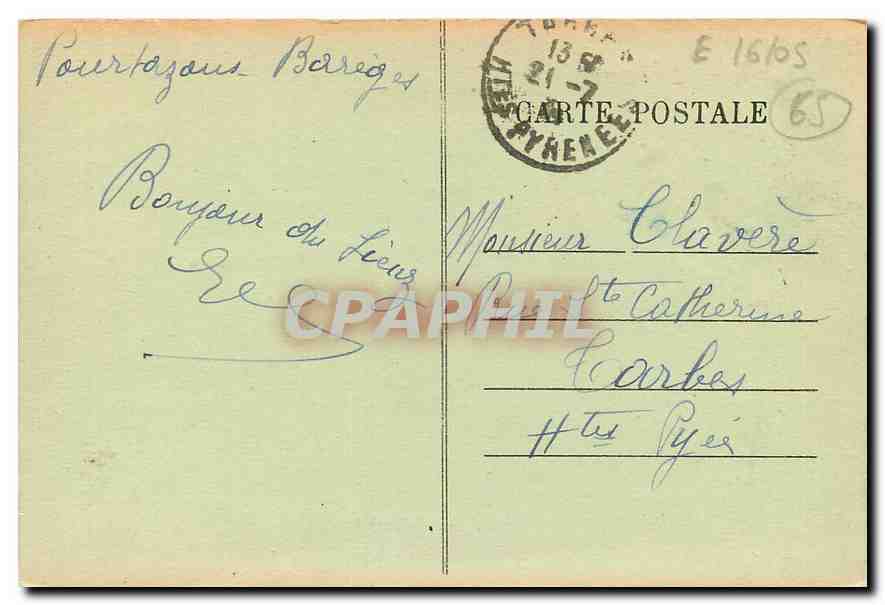 Pourtazous Barèges
E 16/05
65
13
21 -7
HTES PYRENEES
CARTE POSTALE
Bonjour du
Monsieur Clavère
Rue Ste Catherine
Tarbes
Htes Pyées
CPAPHIL